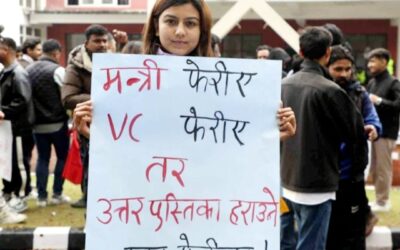 मन्त्री फेरीए
VC फेरीए
तर
उत्तर पुस्तिका हराउने
फेरीएन !